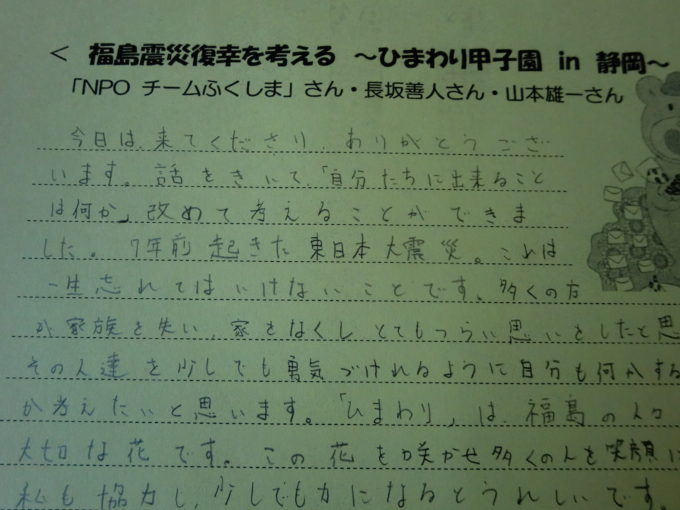 < 福島震災復幸を考える ～ひまわり甲子園 in 静岡～
「NPO チームふくしま」さん・長坂善人さん・山本雄一さん
今日は、来てくださり、ありがとうござ
います。話をきいて、「自分たちに出来ること
は何か」改めて考えることができま
した。7年前起きた東日本大震災。これは
一生忘れてはいけないことです。多くの方
が家族を失い、家をなくしとてもつらい思いをしたと思
その人達を少しでも勇気づけれるように自分も何かする
か考えたいと思います。「ひまわり」は、福島の人
大切な花です。この花を咲かせ多くの人を笑顔に
私も協力し、少しでも力になるとうれしいです。